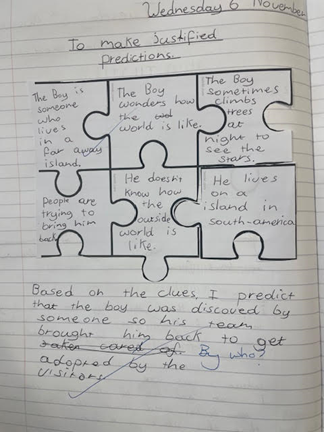 Wednesday 6 November
To make justified
predictions.
The Boy is
someone
who
lives
in a
far away
island.
The Boy
wonders how
the
world is like.
The Boy
sometimes
climbs
trees
at
night to
see the
stars.
people are
trying to
bring him
back
He doesn't
know how
the
outside
world is
like.
He lives
on a
island in
south-america
Based on the clues, I predict
that the boy was discoved by
someone so his team
brought him back to get
taken cared of. By who?
adopred by the
visitors